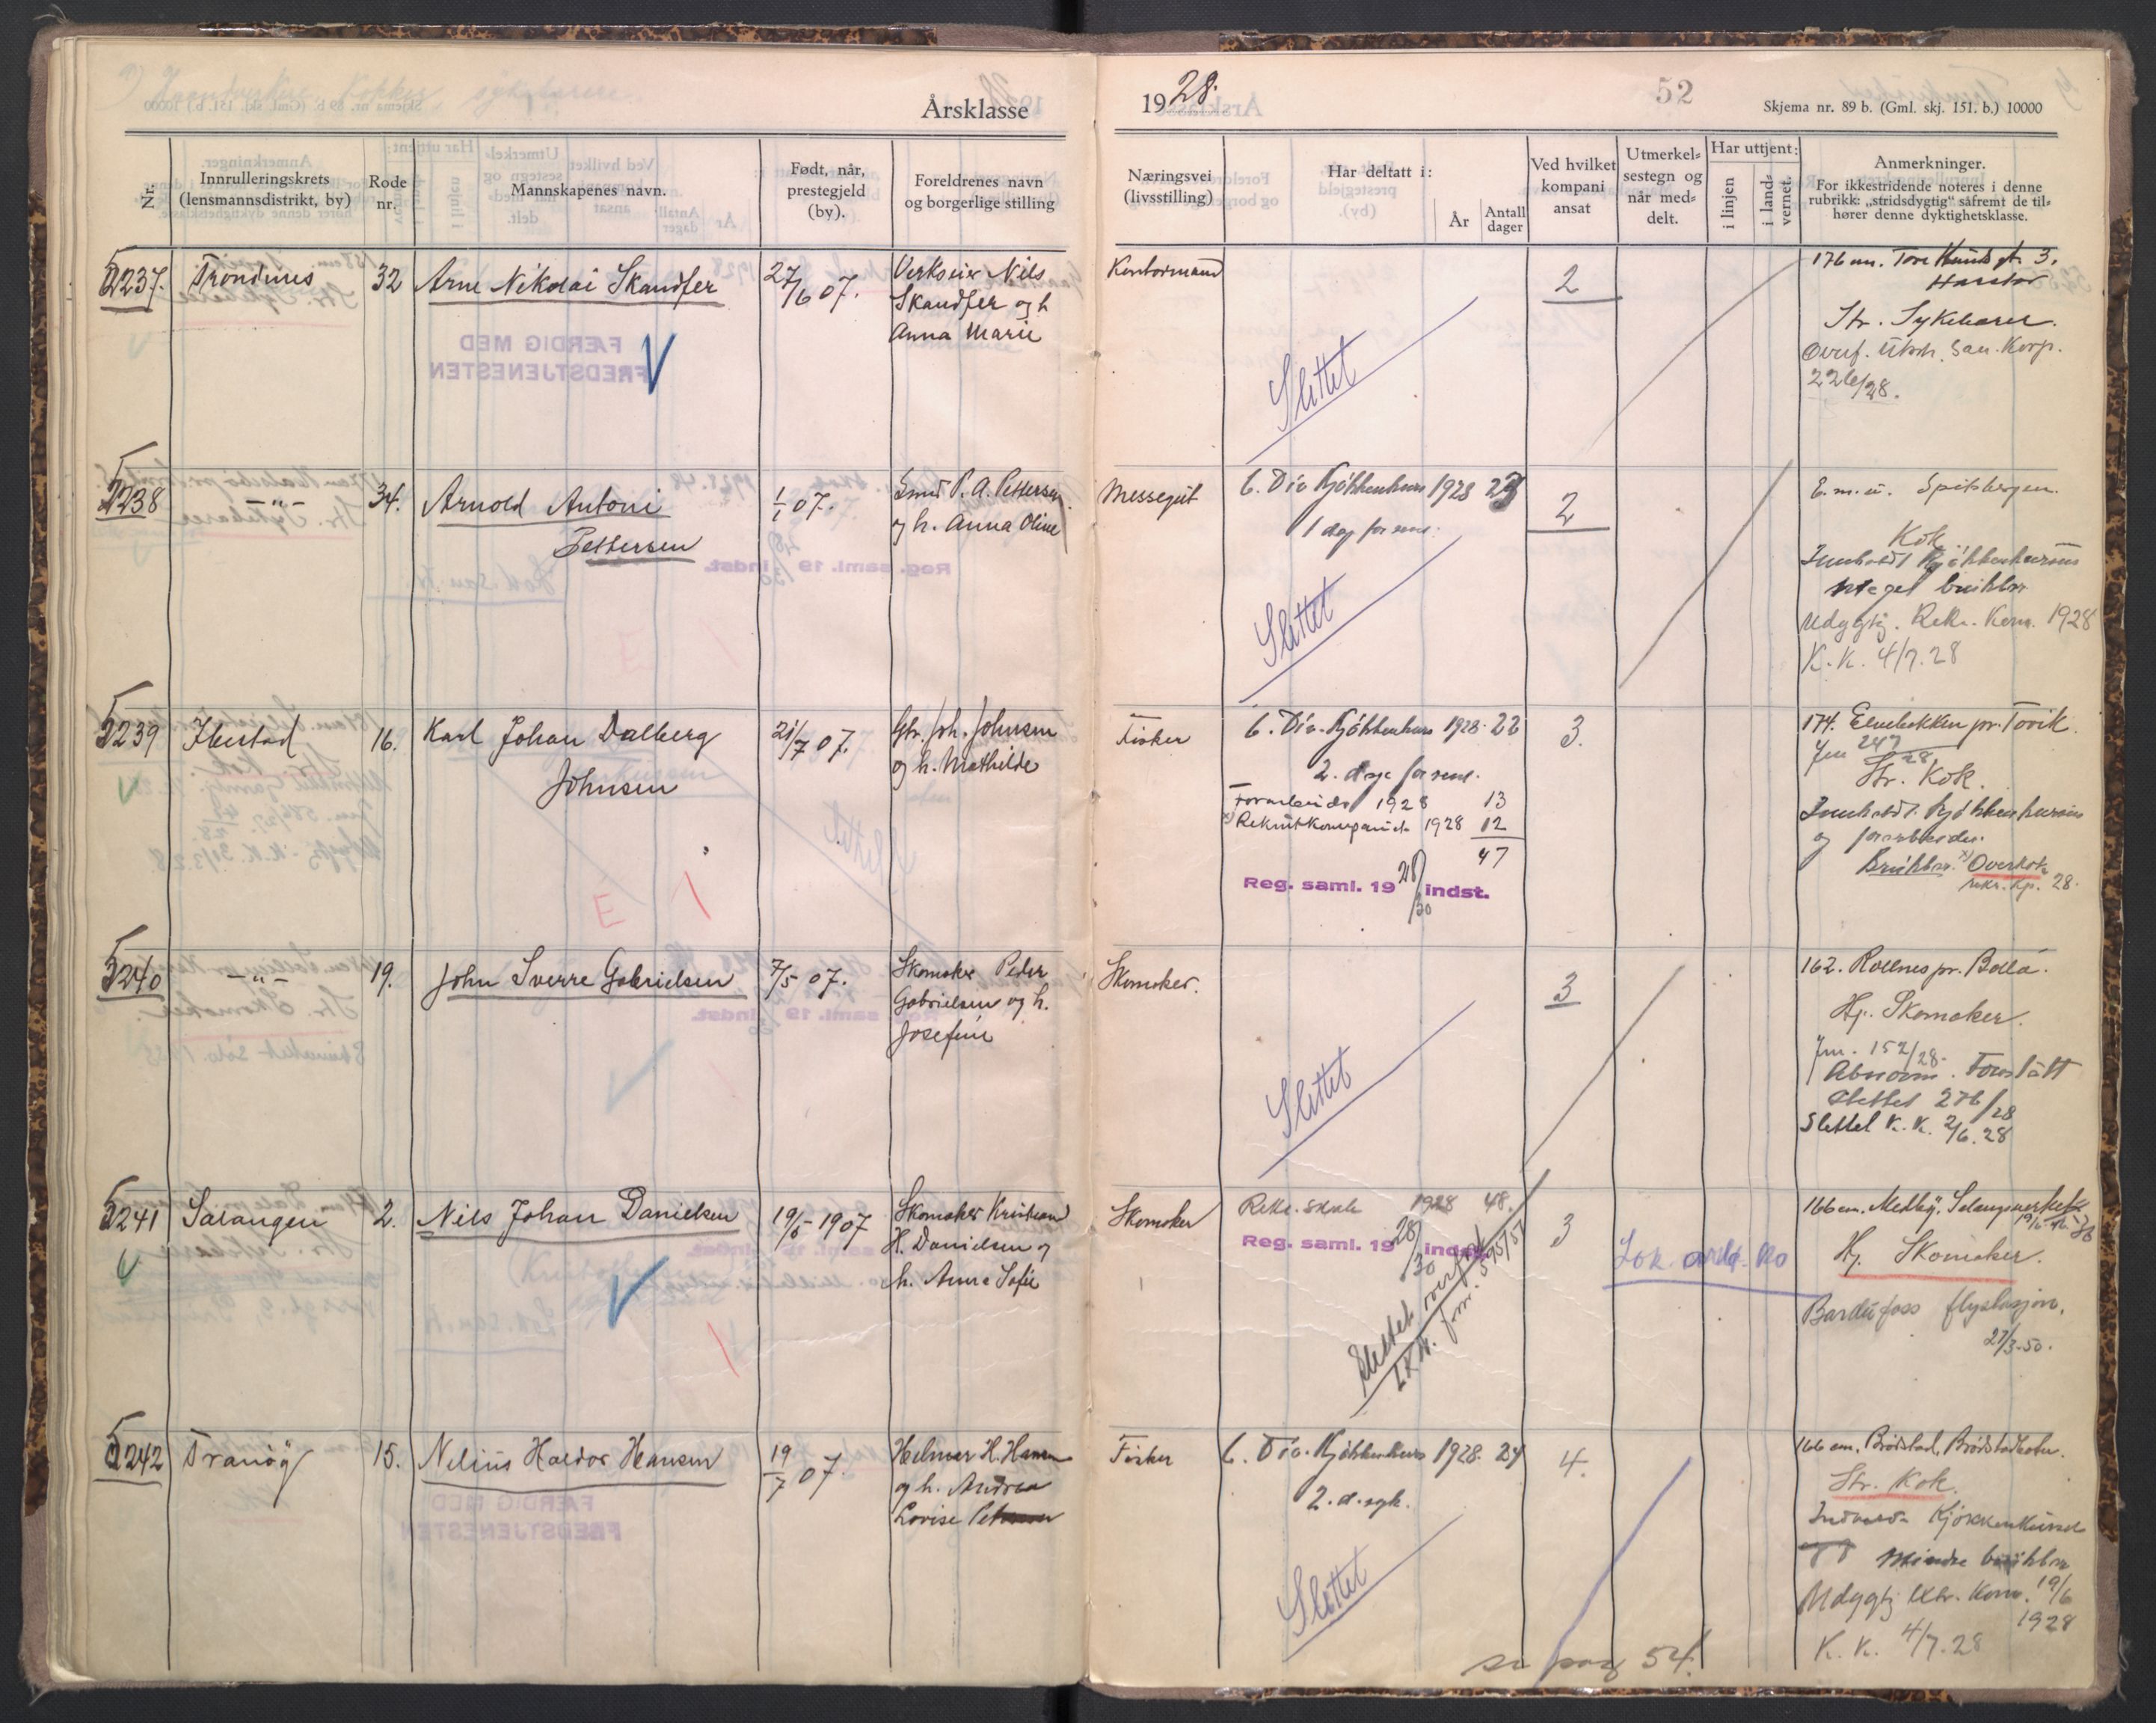 Årsklasse
1928.
52
Skjema nr. 89 b. (Gml. skj. 151. b.) 10000
Nr.
Innrulleringskrets
(lensmannsdistrikt, by)
Rode
nr.
Mannskapenes navn.
Født, når,
prestegjeld
(by).
Foreldrenes navn
og borgerlige stilling
Næringsvei
(livsstilling)
Har deltatt i:
År
Antall
dager
Ved hvilket
kompani
ansat
Utmerkel-
sestegn og
når med-
delt.
Har uttjent:
i linjen
i land-
vernet.
Anmerkninger.
For ikkestridende noteres i denne
rubrikk: „stridsdygtig" såfremt de til-
hører denne dyktighetsklasse.
5237. Trondenes 32 Arne Nikolai Skandfer 27/6 07.
Verkseier Nils
Skandfer og h
Anna Marie
Kontormand
Slettet
2
176 cm. Tore Hunds gt. 3.
Harstad
Str. Sykebærer.
Overf. San. Korp.
22 6/28.
5238 -"- 34. Arnold Antoni
Pettersen
1/1 07.
Smed P. A. Pettersen
og h. Anna Oline
Messegut
6. Div Kjøkkenkurs 1928 23
1 dag for sent.
Slettet
2
E.m.u. Spitsbergen.
Kok
Innholdt Kjøkkenkursus
meget brukbar
Udygtig. Rekr. Kom. 1928
K.K. 4/7.28
5239 Ibestad 16. Karl Johan Dalberg
Johnsen
21/7 07.
Gbr. Joh. Johnsen
og h. Mathilde
Fisker
6. Div. Kjøkkenkurs 1928. 22
2. dage for sent.
Forarbeider 1928 13
x) Rekrutkompaniet 1928 12
47
Reg. saml. 19 28/30 indst.
3.
174. Elvebakken pr. Tovik.
Jnr 247/28
Str. Kok.
Innholdt Kjøkkenkursus
og forarbeider.
Brukbar. x) Overkok
rekr. kp. 28.
E I
5240 -"- 19. John Sverre Gabrielsen 7/5 07.
Skomaker Peder
Gabrielsen og h.
Josefine
Skomaker.
Slettet
3
162. Rollnes pr. Bolla.
Hj. Skomaker.
Jnr. 152/28.
Abnorm. Forslått
slettet 276/28
Slettet K. K. 2/6. 28
5241 Salangen 2. Nils Johan Danielsen 19/5-1907
Skomaker Kristian
H. Danielsen og
h. Anna Sofie
Skomaker
Rekr. skole 1928 48.
Reg. saml. 19 28/30 indst.
Slettet overf.
jnr. 595/51
3
166 cm. Medby. Salangsverket
Hj. Skomaker.
Bardufoss flystasjon.
27/3-50.
5242 Tranøy 15. Nelius Haldor Hansen 19/7 07.
Helmer H. Hansen
og h. Andrea
Lovise
Fisker
6. Div. Kjøkkenkurs 1928. 24
2. d. syk.
Slettet
4.
166 cm. Brødstad, Brødstadbotn.
Str. Kok.
Kjøkkenkursus
mindre brukbar
Udygtig Rekr. Kom. 19/6
1928
K. K. 4/7.28
se pag 54.